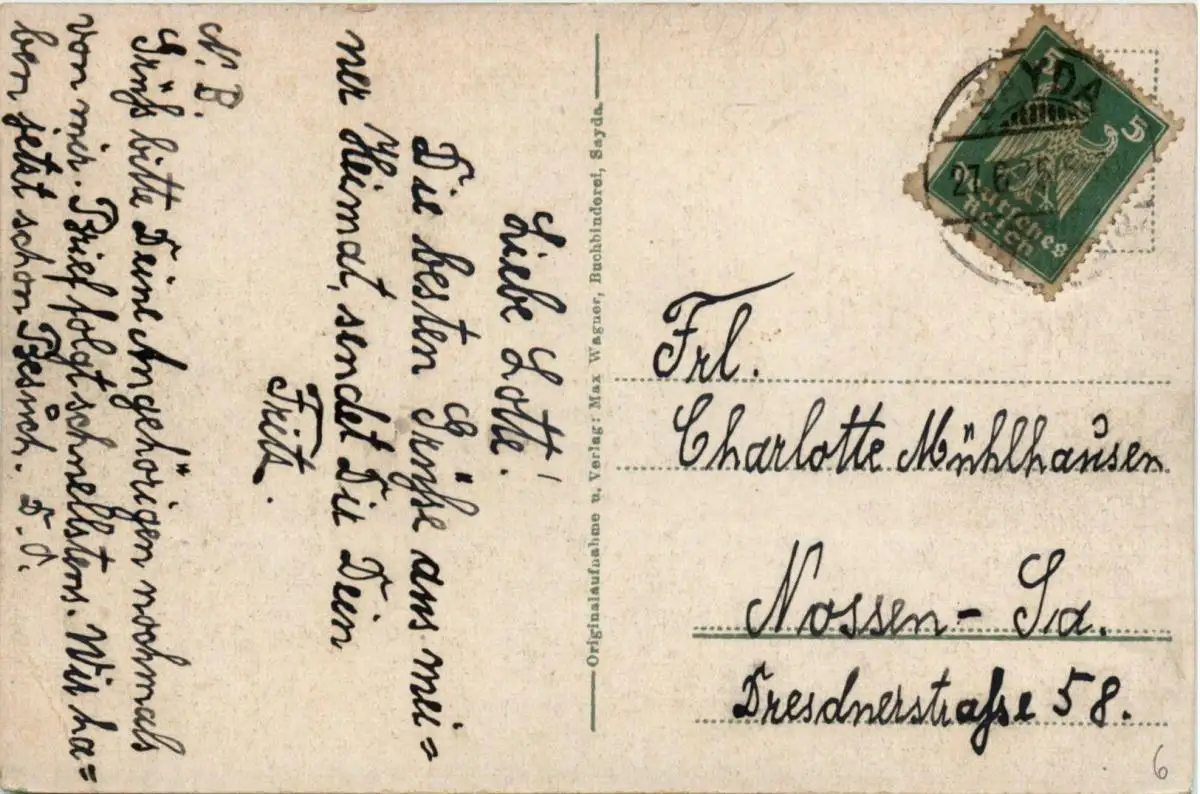 Liebe Lotte!
Die besten Grüße aus mei=
ner Heimat, sendet Dir Dein
Fritz.
N. B.
Grüß bitte Deine Angehörigen nochmals
von mir. Brief folgt schnellstens. Wir ha=
ben jetzt schon Besuch. D. O.
Originalaufnahme u. Verlag: Max Wagner, Buchbinderei, Sayda.
SAYDA
27.6.
5
5
Deutsches
Reich
Frl.
Charlotte Mühlhausen
Nossen - Sa.
Dresdnerstraße 58.
6